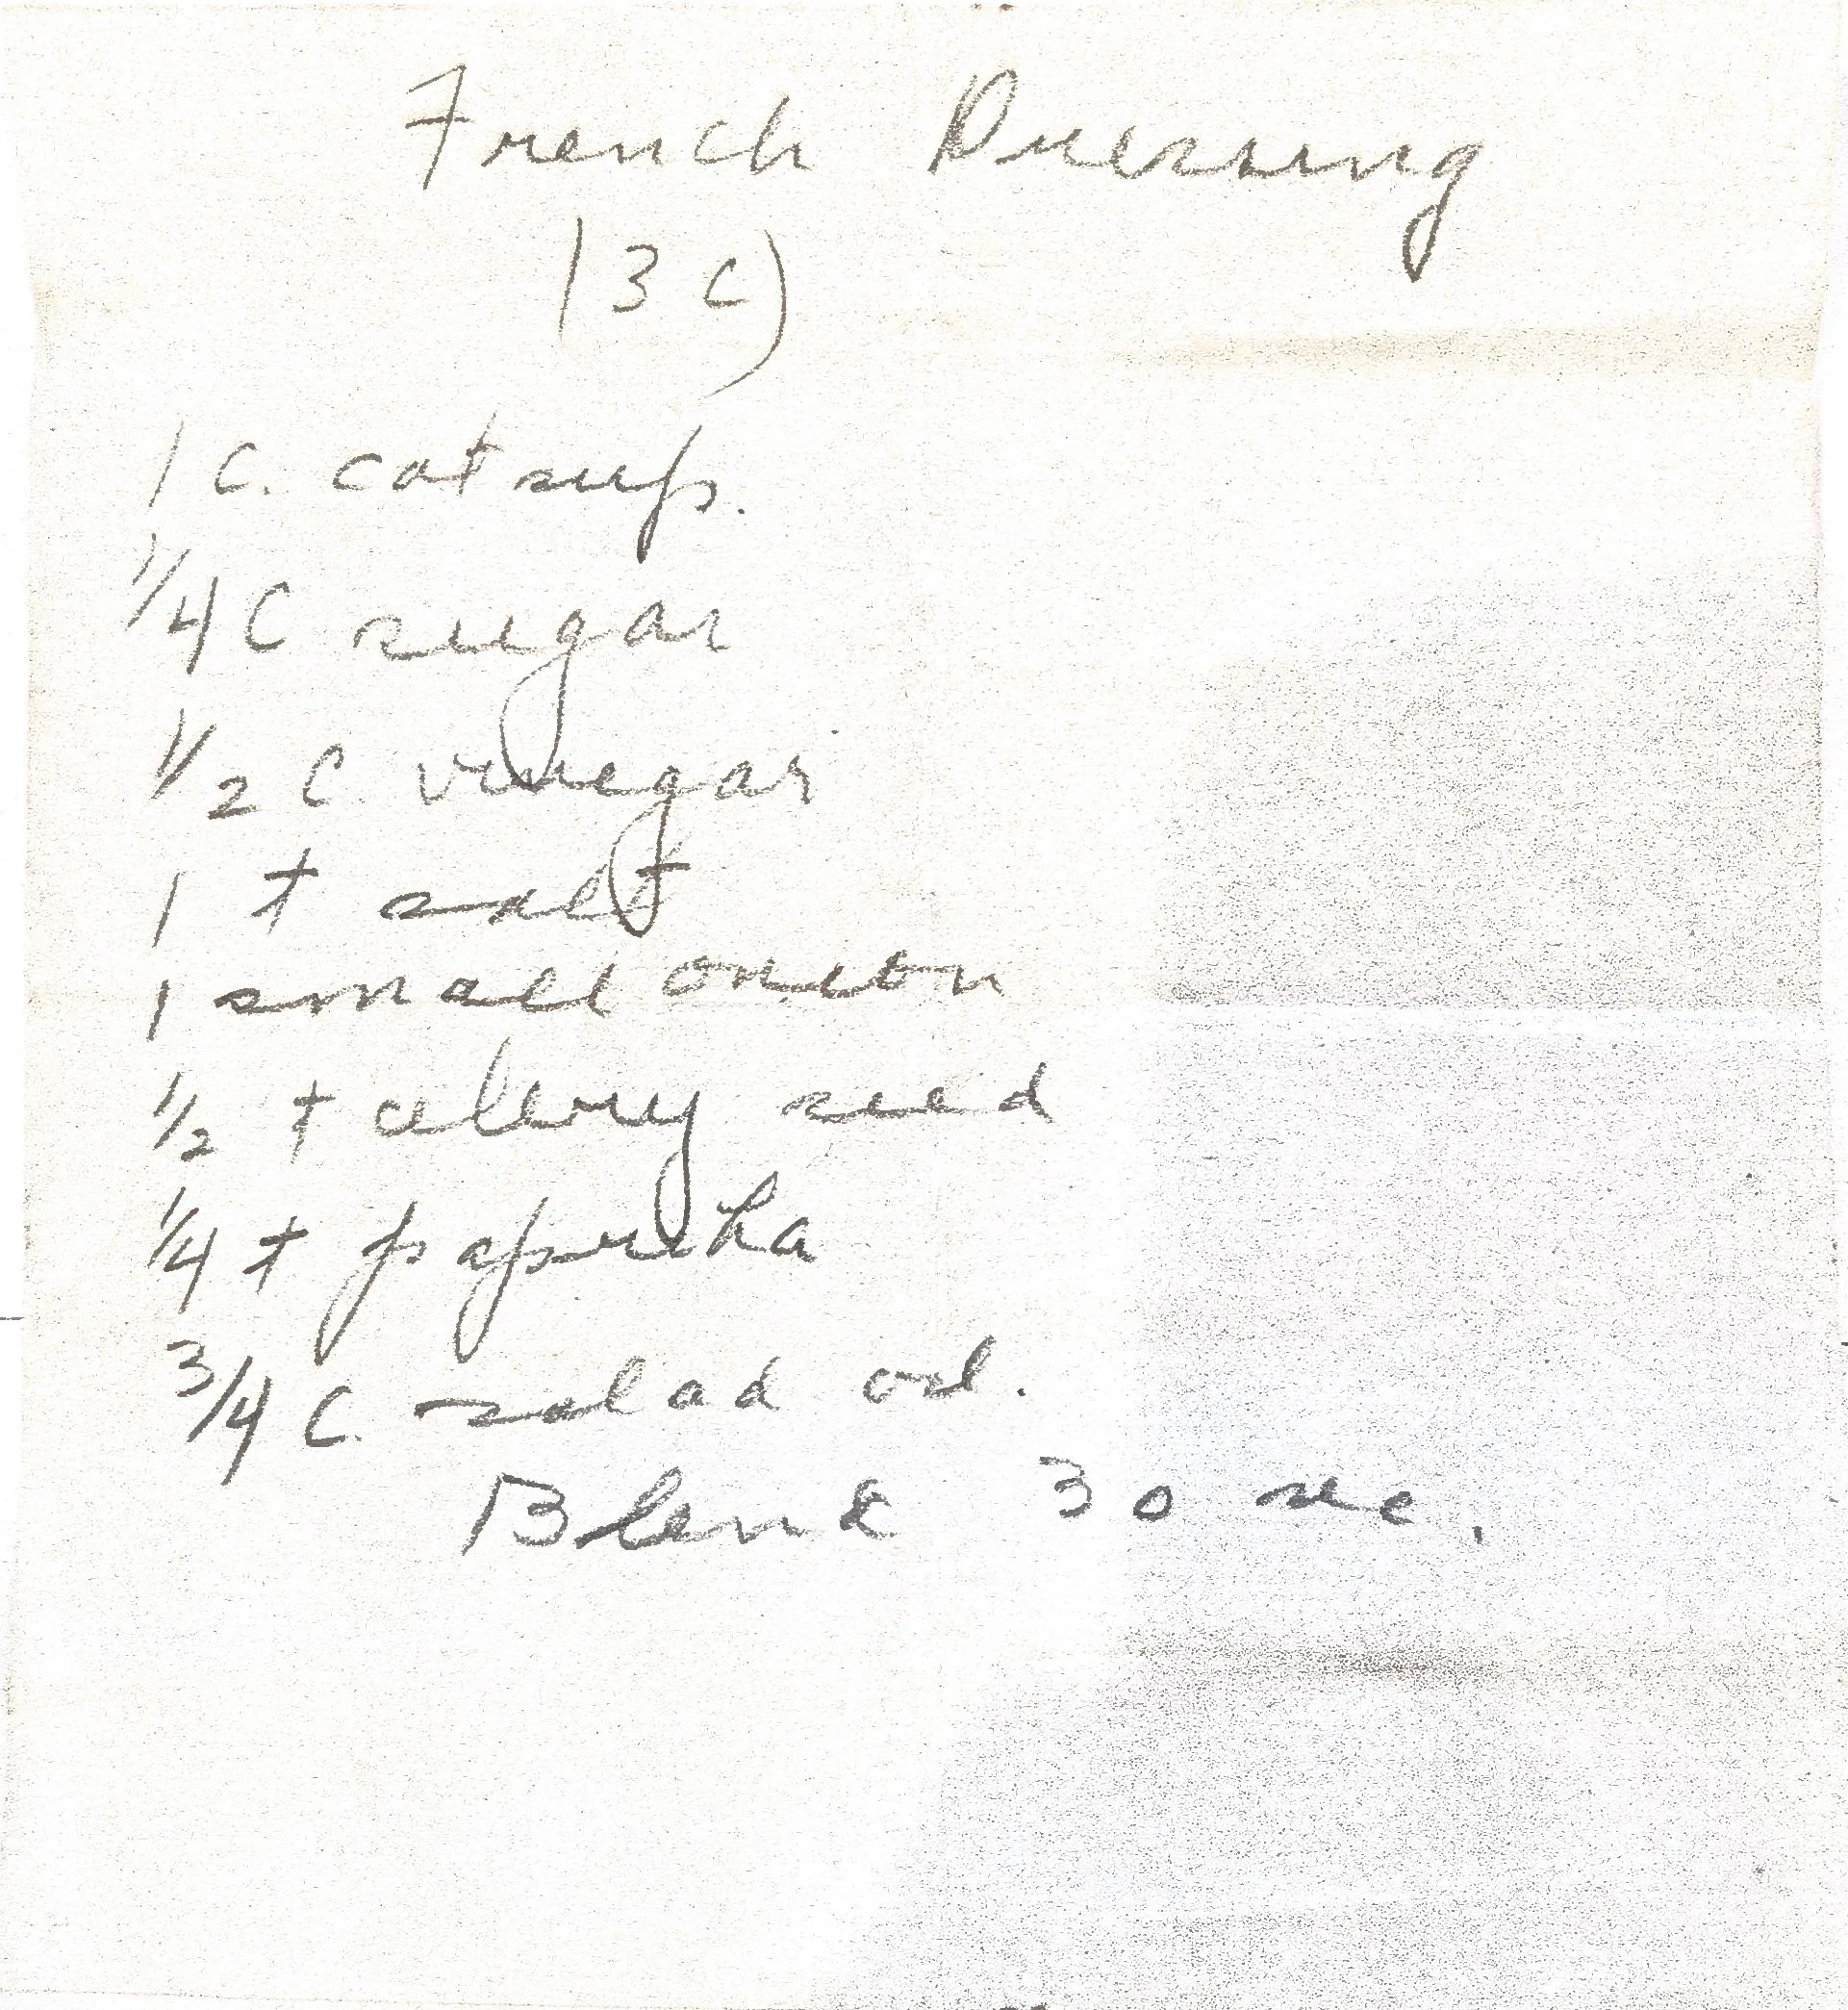 French Dressing
(3 c)
1 c. catsup.
1/4 C sugar
1/2 C. vinegar
1 t salt
1 small onion
1/2 t celery seed
1/4 t paprika
3/4 C. salad oil.
Blend 30 sec.